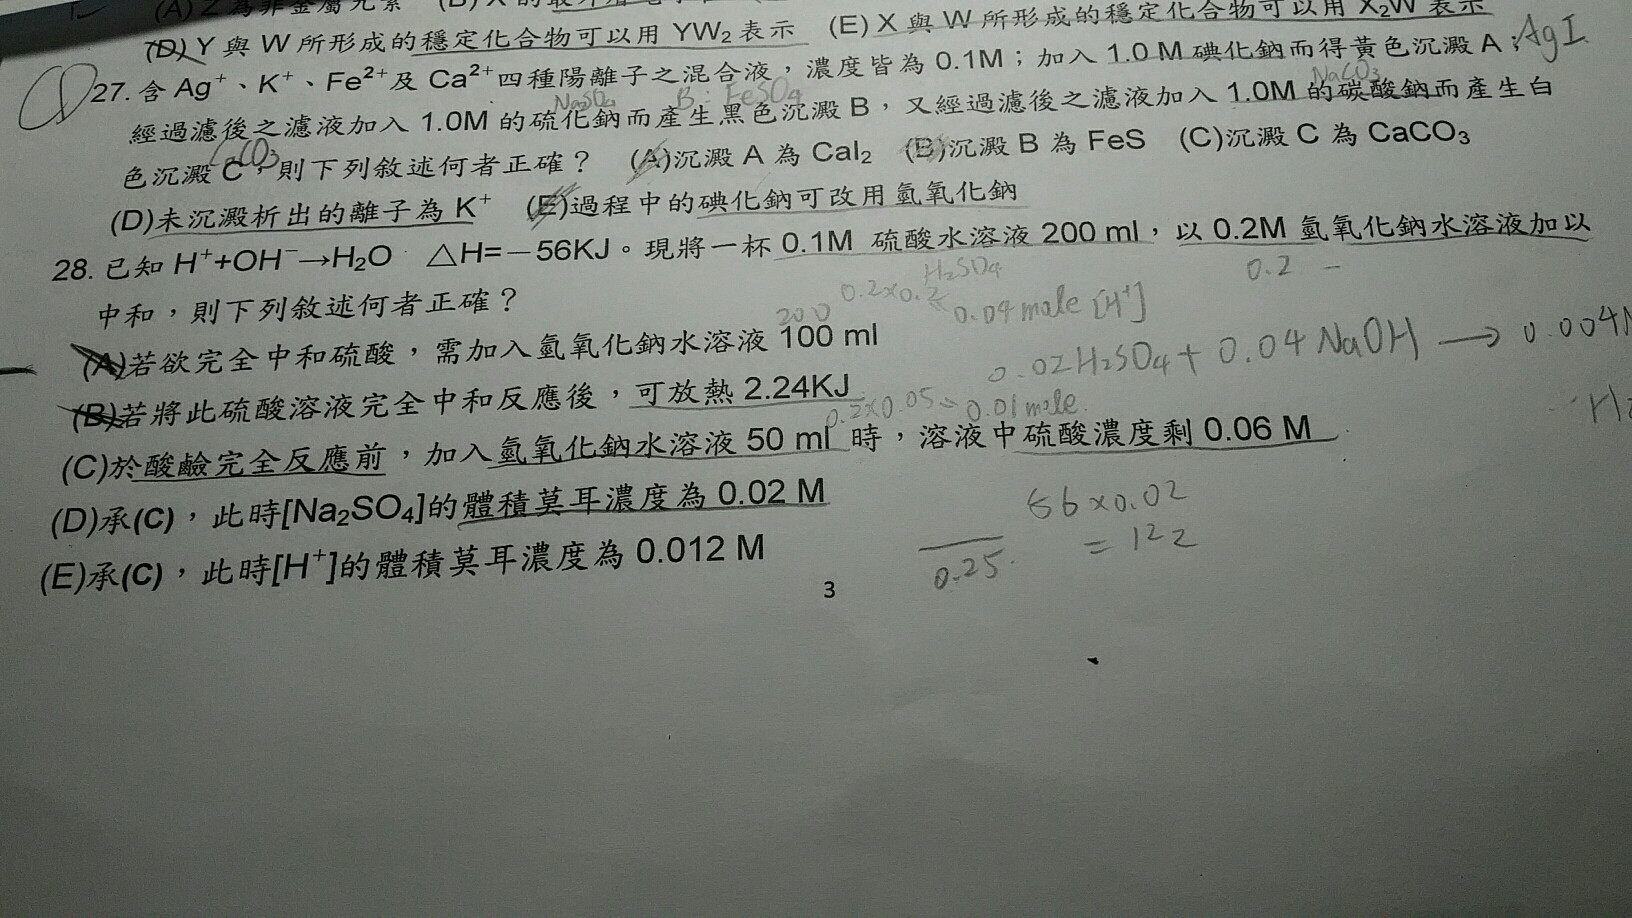 (D) Y 與 W 所形成的穩定化合物可以用 YW₂ 表示 (E) X 與 W 所形成的穩定化合物可以用 X₂W 表示
27. 含 Ag⁺、K⁺、Fe²⁺及 Ca²⁺四種陽離子之混合液，濃度皆為 0.1M；加入 1.0 M 碘化鈉而得黃色沉澱 A； AgI
NaSO₄ B: FeSO₄ NaCO₃
經過濾後之濾液加入 1.0M 的硫化鈉而產生黑色沉澱 B，又經過濾後之濾液加入 1.0M 的碳酸鈉而產生白
CaCO₃
色沉澱 C，則下列敘述何者正確？ (A)沉澱 A 為 CaI₂ (B)沉澱 B 為 FeS (C)沉澱 C 為 CaCO₃
(D)未沉澱析出的離子為 K⁺ (E)過程中的碘化鈉可改用氫氧化鈉
28. 已知 H⁺+OH⁻→H₂O △H=－56KJ。現將一杯 0.1M 硫酸水溶液 200 ml，以 0.2M 氫氧化鈉水溶液加以
H₂SO₄ 0.2
中和，則下列敘述何者正確？
0.2×0.2 0.04 mole [H⁺]
200
(A)若欲完全中和硫酸，需加入氫氧化鈉水溶液 100 ml
0.02H₂SO₄ + 0.04 NaOH → 0.004
(B)若將此硫酸溶液完全中和反應後，可放熱 2.24KJ
0.2×0.05 = 0.01 mole
(C)於酸鹼完全反應前，加入氫氧化鈉水溶液 50 ml 時，溶液中硫酸濃度剩 0.06 M
(D)承(C)，此時[Na₂SO₄]的體積莫耳濃度為 0.02 M
56×0.02
= 122
(E)承(C)，此時[H⁺]的體積莫耳濃度為 0.012 M
0.25
3